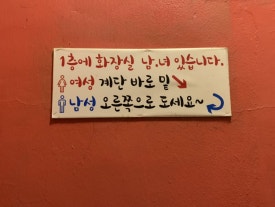 1층에 화장실 남.녀 있습니다.
여성 계단 바로 밑
남성 오른쪽으로 도세요~